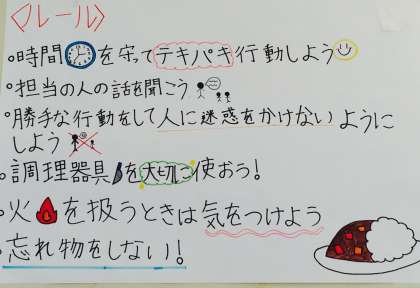 〈ルール〉
•時間を守ってテキパキ行動しよう
•担当の人の話を聞こう
•勝手な行動をして人に迷惑をかけないように
しよう
•調理器具を大切に使おう！
•火を扱うときは気をつけよう
•忘れ物をしない！